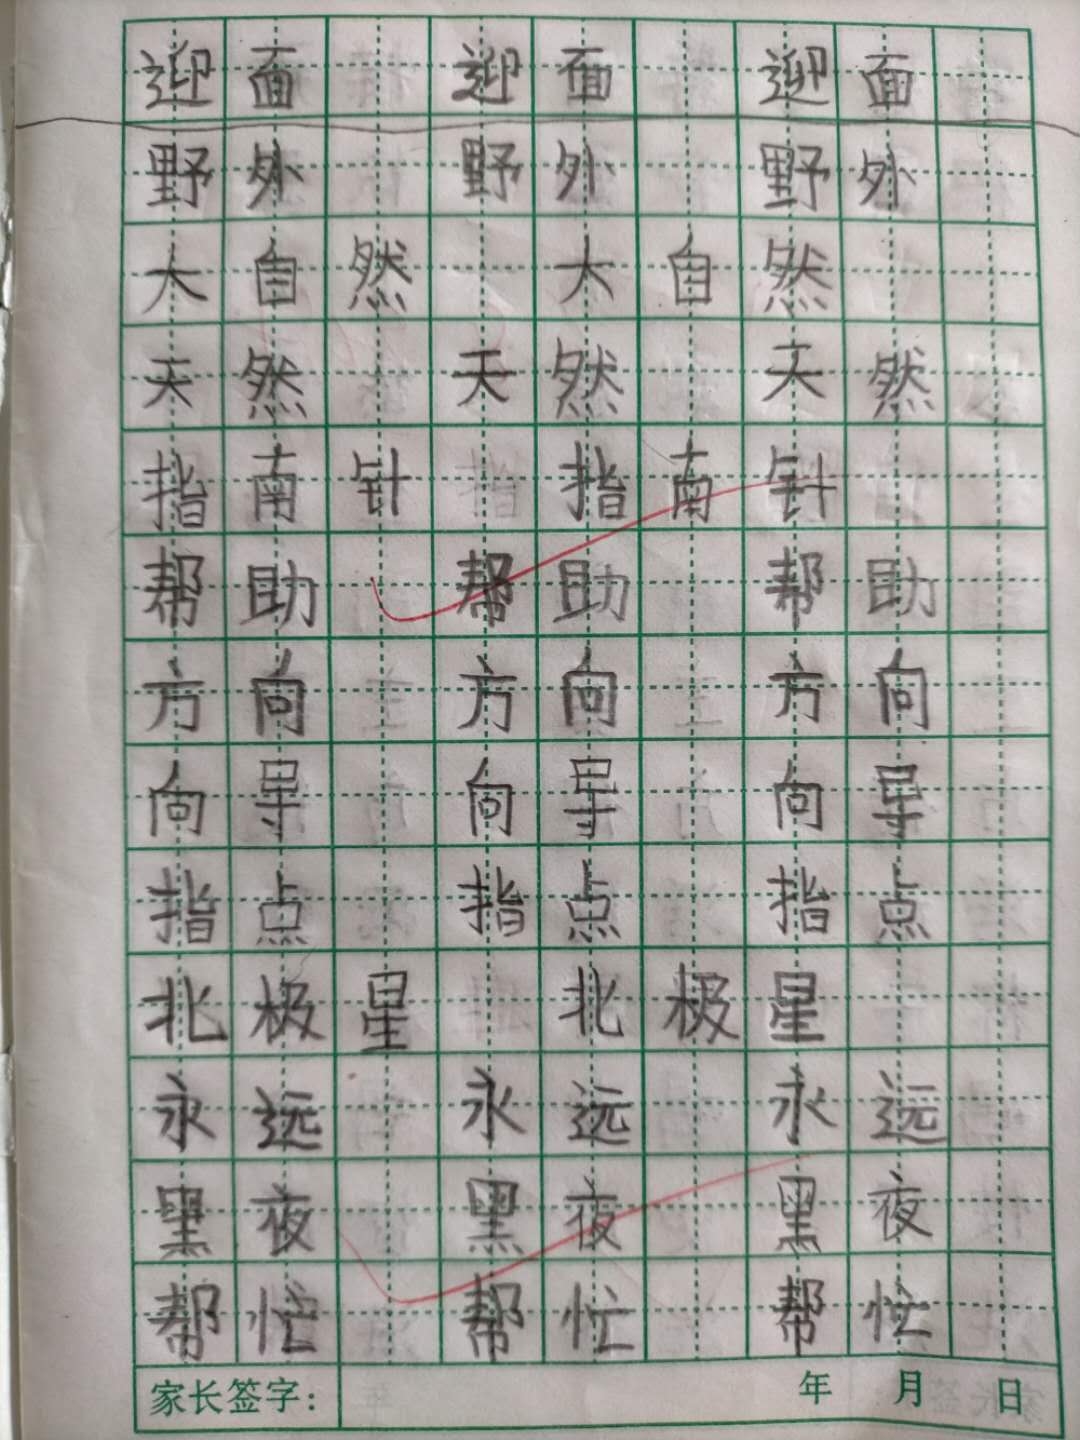 迎面 迎面 迎面
野外 野外 野外
大自然 大自然
天然 天然 天然
指南针 指南针
帮助 帮助 帮助
方向 方向 方向
向导 向导 向导
指点 指点 指点
北极星 北极星
永远 永远 永远
黑夜 黑夜 黑夜
帮忙 帮忙 帮忙
家长签字： 年 月 日